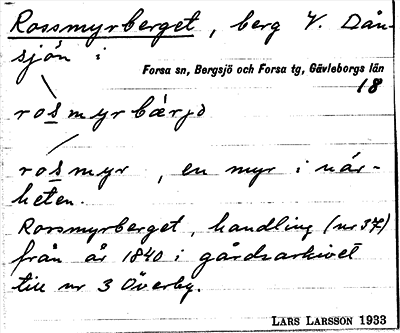 Rossmyrberget, berg V. Dån-
sjön i
Forsa sn, Bergsjö och Forsa tg, Gävleborgs län
18
rosmyrbärjə
rosmyr, en myr i när-
heten.
Rorsmyrberget, handling (nr 37)
från år 1840 i gårdsarkivet
till nr 3 Överby.
LARS LARSSON 1933